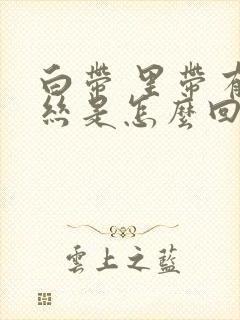 白帶 里帶有
絲是怎麼回
雲上之藍